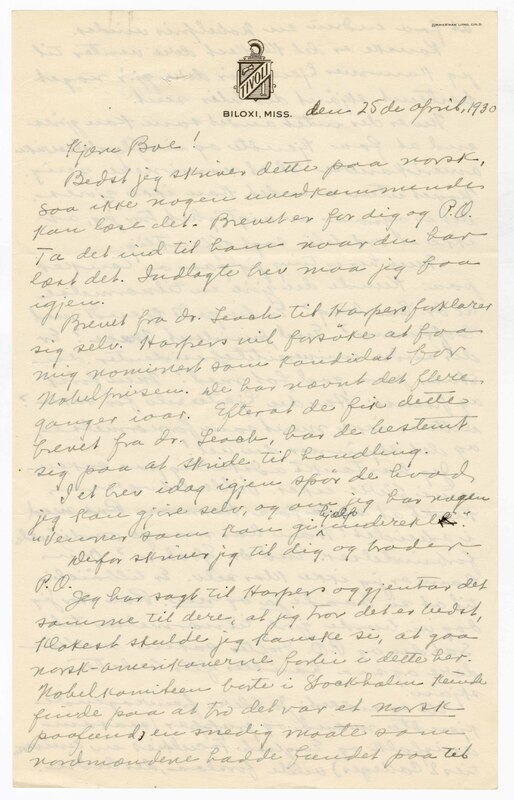 ZIMMERMAN LITHO, CHI.O
TIVOLI
BILOXI, MISS.
den 25de april, 1930
Kjære Boe!
Bedst jeg skriver dette paa norsk,
saa ikke nogen uvedkommende
kan læse det. Brevet er for dig og P.O.
Ta det ind til ham naar du har
læst det. Indlagte brev maa jeg faa
igjen.
Brevet fra dr. Leach til Harpers forklarer
sig selv. Harpers vil forsöke at faa
mig nominert som kandidat for
Nobelprisen. De har nævnt det flere
ganger iaar. Efterat de fik dette
brevet fra dr. Leach, har de bestemt
sig paa at skride til handling.
I et brev idag igjen spör de hvad
jeg kan gjöre selv, og om jeg har nogen
"venner som kan gi hjelp
Derfor skriver jeg til dig og broder
P.O.
Jeg har sagt til Harpers og gjentar det
samme til dere, at jeg tror det er bedst,
klokest skulde jeg kanske si, at gaa
norsk-amerikanerne forbi i dette her.
Nobelkomiteen borte i Stockholm kunde
finde paa at tro det var et norsk
paafund, en snedig maate som
nordmændene hadde fundet paa til